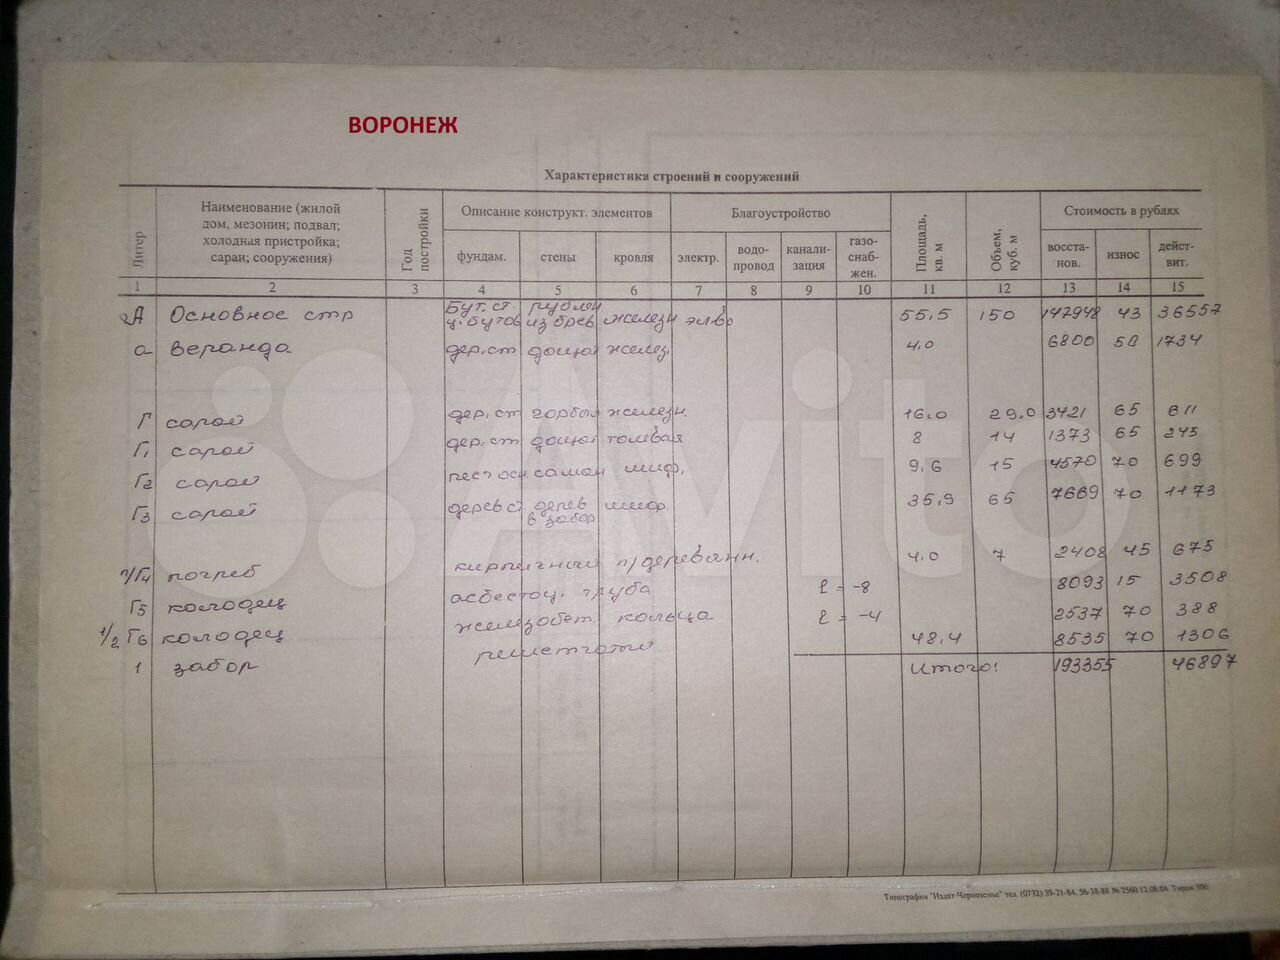 ВОРОНЕЖ
Характеристика строений и сооружений
Литер
Наименование (жилой дом, мезонин; подвал; холодная пристройка; сараи; сооружения)
Год постройки
Описание конструкт. элементов
Благоустройство
Площадь, кв. м
Объем, куб. м
Стоимость в рублях
фундам. стены кровля электр. водо-провод канали-зация газо-снаб-жен. восста-нов. износ дейст-вит.
1 2 3 4 5 6 7 8 9 10 11 12 13 14 15
Бут. ст. рублен
А Основное стр ц. бутов из брев железн эл-во 55,5 150 147948 43 36557
а веранда дер. ст дощат желез. 4.0 6800 50 1734
Г сарай дер. ст горбыл железн. 16.0 29.0 3421 65 611
Г1 сарай дер. ст дощат толевая 8 14 1373 65 245
Г2 сарай песч осн. саман шиф. 9,6 15 4570 70 699
Г3 сарай дерев ст дерев шиф. 35,9 65 7669 70 1173
в забор
п/Г4 погреб кирпичный п/деревянн. 4.0 7 2408 45 675
Г5 колодец асбестоц. труба l = -8 8093 15 3508
1/2 Г6 колодец железобет. кольца l = -4 2537 70 388
1 забор решетчатый 48,4 8535 70 1306
Итого: 193355 46897
Типография "Издат-Черноземье" тел. (0732) 39-21-84, 56-38-88 № 2560 12.08.04 Тираж 500
Avito